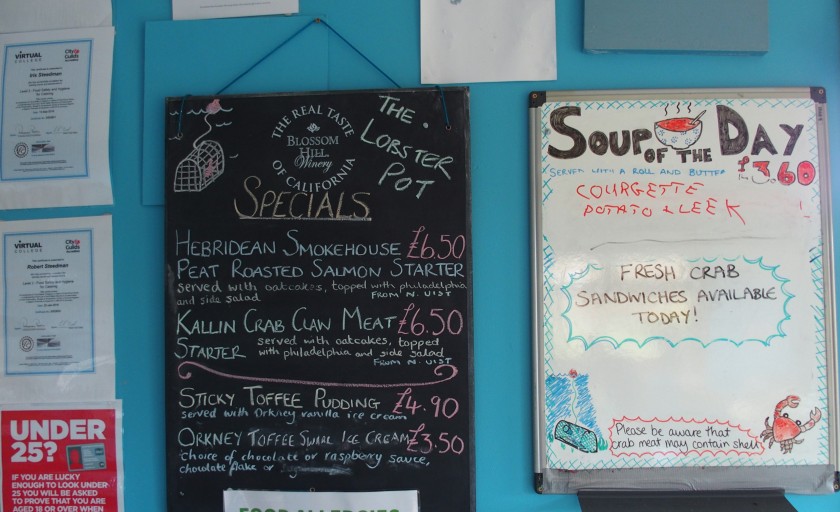 VIRTUAL
COLLEGE
City&
Guilds
Iris Steedman
VIRTUAL
COLLEGE
City&
Guilds
Robert Steedman
UNDER
25?
IF YOU ARE LUCKY
ENOUGH TO LOOK UNDER
25 YOU WILL BE ASKED
TO PROVE THAT YOU ARE
AGED 18 OR OVER WHEN
THE REAL TASTE
BLOSSOM
HILL
Winery
OF CALIFORNIA
THE.
LOBSTER
POT
SPECIALS
HEBRIDEAN SMOKEHOUSE £6.50
PEAT ROASTED SALMON STARTER
served with oatcakes, topped with philadelphia
and side salad FROM N. UIST
KALLIN CRAB CLAW MEAT £6.50
STARTER served with oatcakes, topped
with philadelphia and side salad
FROM N. UIST
STICKY TOFFEE PUDDING £4.90
served with Orkney vanilla ice cream
ORKNEY TOFFEE SWIRL ICE CREAM £3.50
choice of chocolate or raspberry sauce,
chocolate flake or
FOOD ALLERGIES
SOUP OF THE DAY
SERVED WITH A ROLL AND BUTTER £3.60
COURGETTE
POTATO & LEEK
FRESH CRAB
SANDWICHES AVAILABLE
TODAY!
Please be aware that
crab meat may contain shell